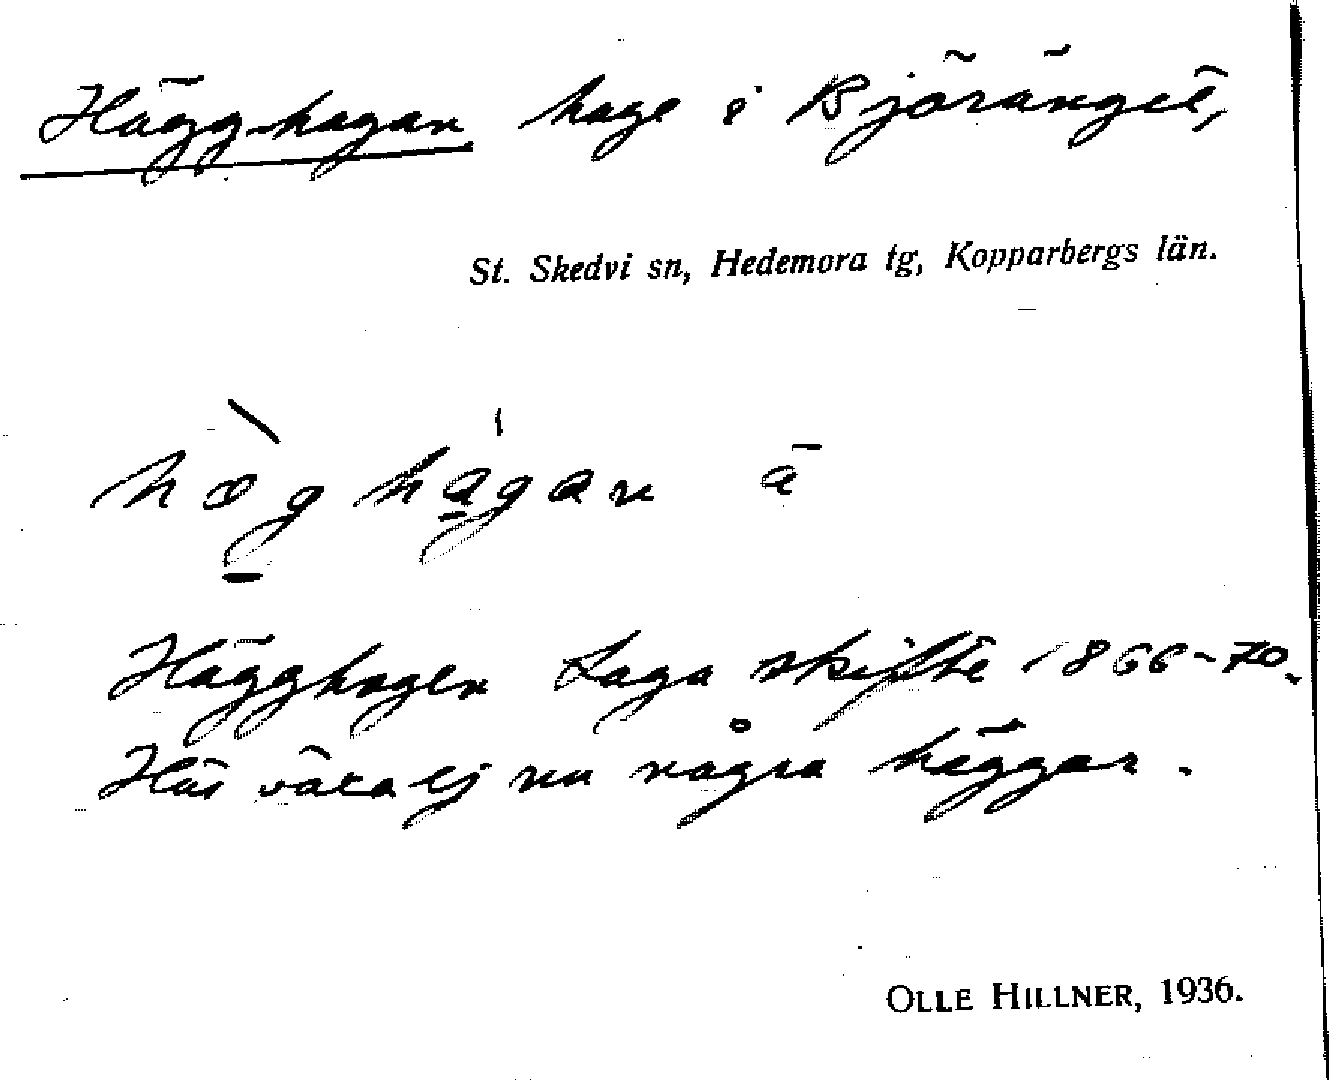 Hägghagan hage i Björänget,
St. Skedvi sn, Hedemora tg, Kopparbergs län.
hæ̀g hágan ä
Hägghagen Laga skifte 1866-70.
Här växa ej nu några häggar.
OLLE HILLNER, 1936.